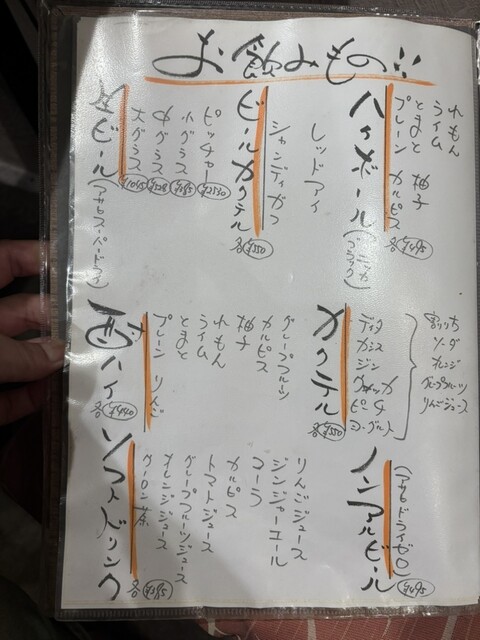 お飲みもの!!
生ビール(アサヒスーパードライ)
大グラス ¥1045
中グラス
小グラス
ピッチャー
ビールカクテル 各¥550
シャンディガフ
レッドアイ
ハイボール(ブラックニッカ) 各¥495
プレーン カルピス
とまと 柚子
ライム
れもん
酎ハイ 各¥440
プレーン りんご
とまと
ライム
れもん
柚子
カルピス
グレープフルーツ
カクテル 各¥550
ディタ
カシス
ジン
ウォッカ
ピーチ
ヨーグルト
ソーダ
オレンジ
グレープフルーツ
りんごジュース
ソフトドリンク 各¥385
ウーロン茶
オレンジジュース
グレープフルーツジュース
トマトジュース
カルピス
コーラ
ジンジャーエール
りんごジュース
ノンアルビール ¥495
(アサヒドライゼロ)